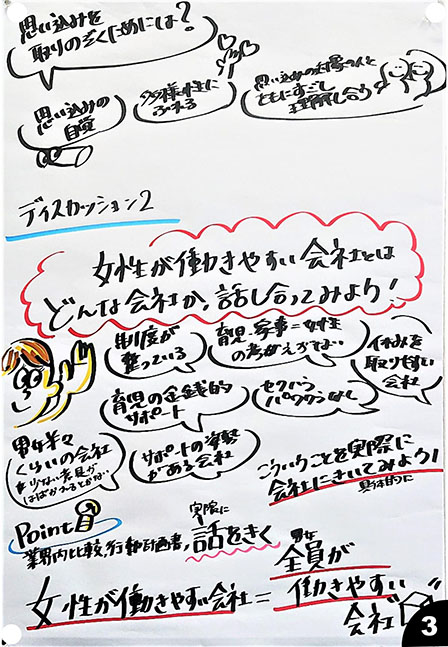 思い込みを
取りのぞくためには？
思い込みの
自覚
多様性に
ふれる
思い込みの対象の人と
ともにすごし
理解し合う
ディスカッション2
女性が働きやすい会社とは
どんな会社か、話し合ってみよう！
制度が
整っている
育児・家事＝女性
の考えがない
休みを
取りやすい
会社
育児の金銭的
サポート
セクハラ
パワハラなし
男女半々
くらいの会社
サポートの姿勢
がある会社
こういうことを実際に
会社にきいてみよう！
具体的に
Point
業界内比較、行動計画書、
実際に
話をきく
女性が働きやすい会社＝
男女
全員が
働きやすい
会社
3